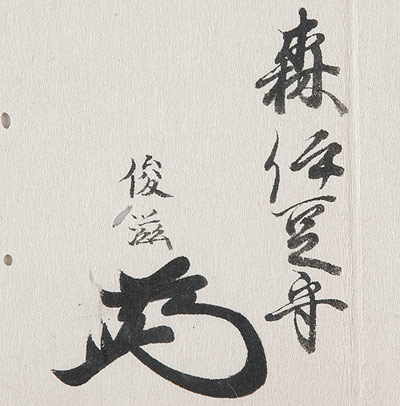 森伊豆守
俊滋